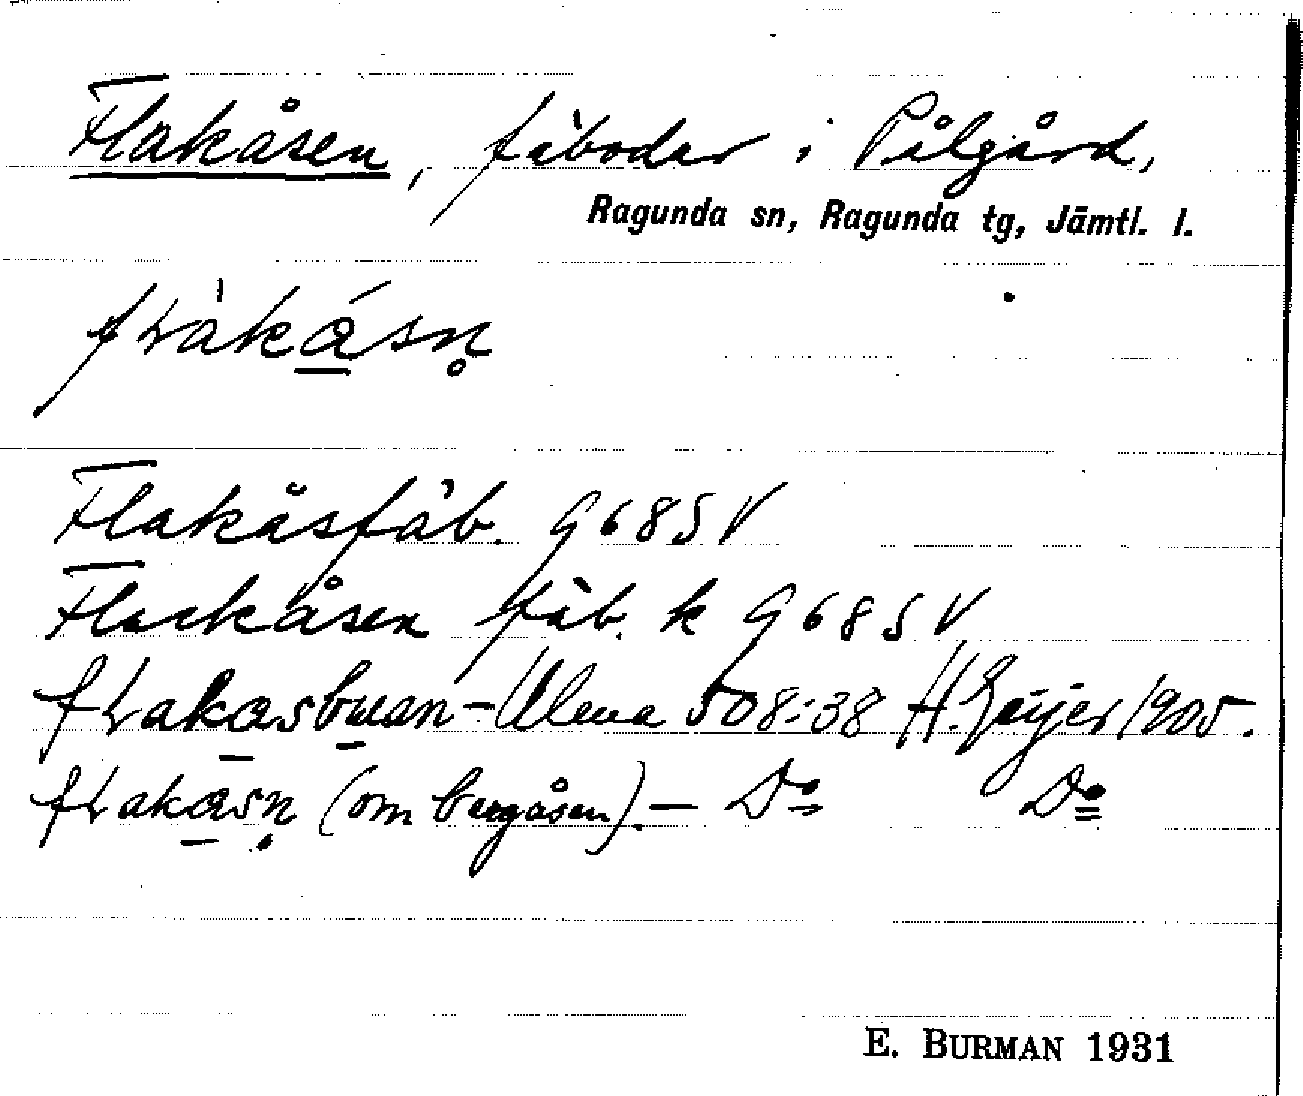 Flakåsen, fäbodar i Pålgård,
Ragunda sn, Ragunda tg, Jämtl. l.
fLàká̱sn̥
Flakåsfäb. G 68 S V
Flackåsen fäb. k G 68 S V
fLaka̱sbu̱an - Ulma 508:38 H. Geijer 1905.
fLaka̱sn̥ (om bergåsen). — Do Do
E. BURMAN 1931